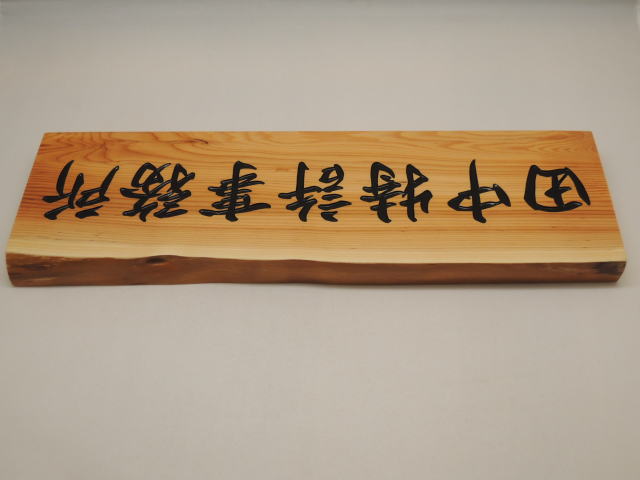 田中特許事務所